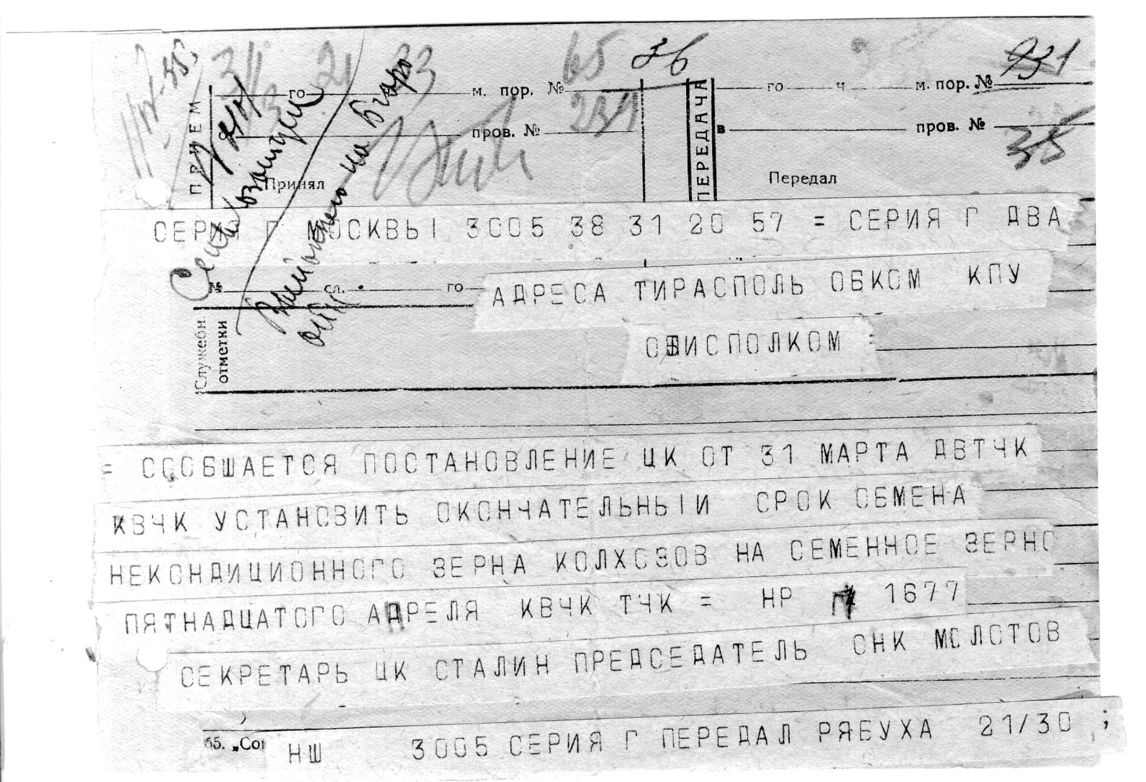 65 36 931
го м. пор. № го ч м. пор. №
231
ПРИЕМ пров. № ПЕРЕДАЧА в пров. № 35
Принял Передал
СЕРИЯ Г МОСКВЫ 3005 38 31 20 57 = СЕРИЯ Г ДВА
№ сл. го
АДРЕСА ТИРАСПОЛЬ ОБКОМ КПУ
Служебн. отметки
ОБИСПОЛКОМ =
= СООБШАЕТСЯ ПОСТАНОВЛЕНИЕ ЦК ОТ 31 МАРТА ДВТЧК
КВЧК УСТАНОВИТЬ ОКОНЧАТЕЛЬНЫИ СРОК ОБМЕНА
НЕКОНДИЦИОННОГО ЗЕРНА КОЛХОЗОВ НА СЕМЕННОЕ ЗЕРНО
ПЯТНАДЦАТОГО АПРЕЛЯ КВЧК ТЧК = НР 1677
СЕКРЕТАРЬ ЦК СТАЛИН ПРЕДСЕДАТЕЛЬ СНК МОЛОТОВ
65. „Со
НШ 3005 СЕРИЯ Г ПЕРЕДАЛ РЯБУХА 21/30 ;